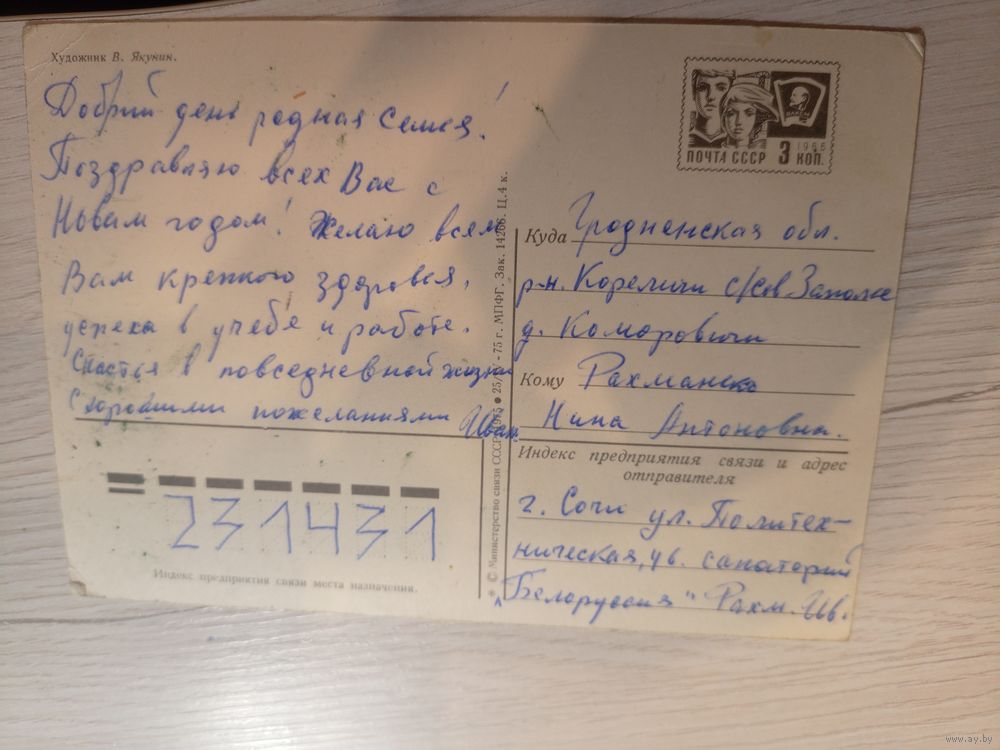 Художник В. Якунин.
Добрий день родная семья!
Поздравляю всех Вас с
Новым годом! Желаю всем
Вам крепкого здоровья,
успеха в учебе и работе.
Счастья в повседневной жизни
С хорошими пожеланиями Иван.
231431
Индекс предприятия связи места назначения.
© Министерство связи СССР, 1975 ● 25/IV-75 г. МПФГ. Зак. 14266. Ц. 4 к.
ПОЧТА СССР 3 КОП.
1966
ВЛКСМ
Куда Гродненская обл.
р-н. Кореличи с/сов Заполье
д. Комаровичи
Кому
Нина Антоновна.
Индекс предприятия связи и адрес
отправителя
г. Сочи ул. Политех-
ническая, санаторий
„Белоруссия" Рахм. Ив.
www.ay.by